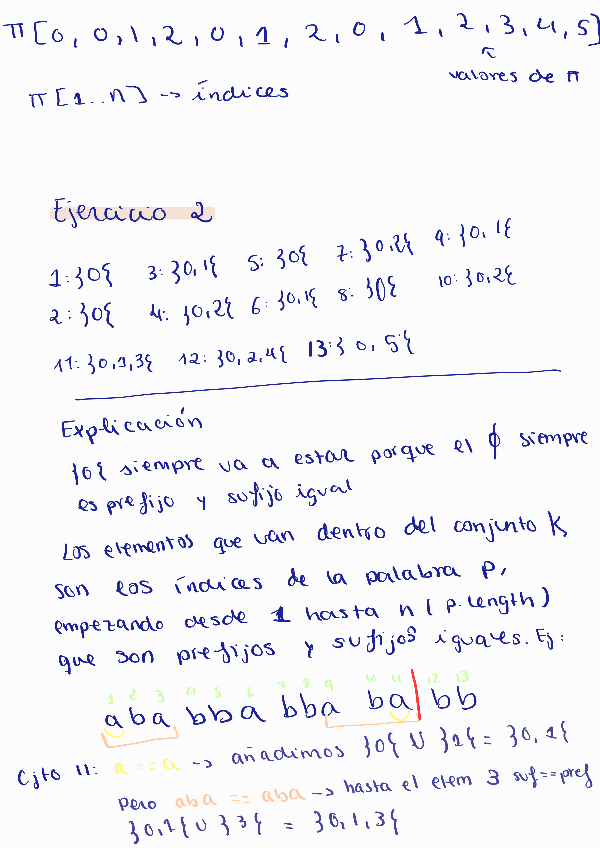 π[0, 0, 1, 2, 0, 1, 2, 0, 1, 2, 3, 4, 5]
valores de π
π[1..n] -> índices
Ejercicio 2
1: }0{ 3: }0,1{ 5: }0{ 7: }0,2{ 9: }0,1{
2: }0{ 4: }0,2{ 6: }0,1{ 8: }0{ 10: }0,2{
11: }0,1,3{ 12: }0,2,4{ 13: } 0, 5{
Explicación
}0{ siempre va a estar porque el ϕ siempre
es prefijo y sufijo igual
Los elementos que van dentro del conjunto K
son los índices de la palabra P,
empezando desde 1 hasta n (p.length)
que son prefijos y sufijos iguales. Ej:
1 2 3 4 5 6 7 8 9 10 11 12 13
aba bba bba ba|bb
Cjto 11: a == a -> añadimos }0{ U }1{ = }0,1{
Pero aba == aba -> hasta el elem 3 suf==pref
}0,1{ U }3{ = }0,1,3{